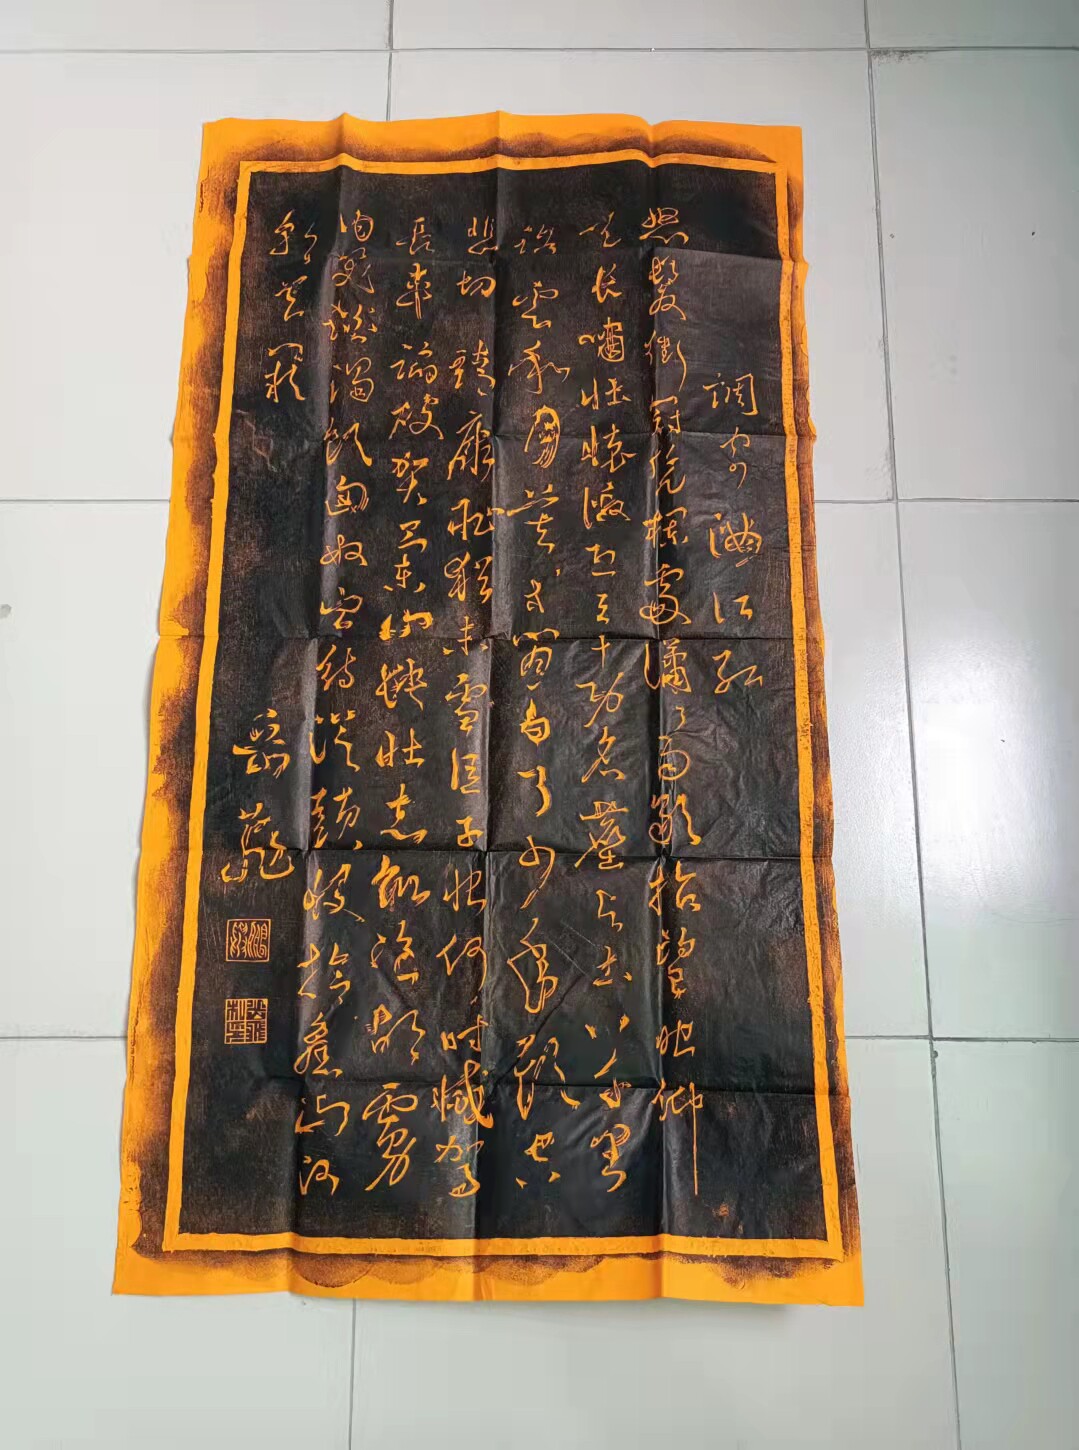 調寄滿江紅
怒髮衝冠憑欄處瀟々雨歇抬望眼仰
天長嘯壯懷激烈三十功名塵與土八千里
路雲和月莫等閒白了少年頭空
悲切靖康恥猶未雪臣子恨何時滅駕
長車踏破賀蘭山缺壯志飢餐胡虜
肉笑談渴飲匈奴血待從頭收拾舊山河
朝天闕
岳飛